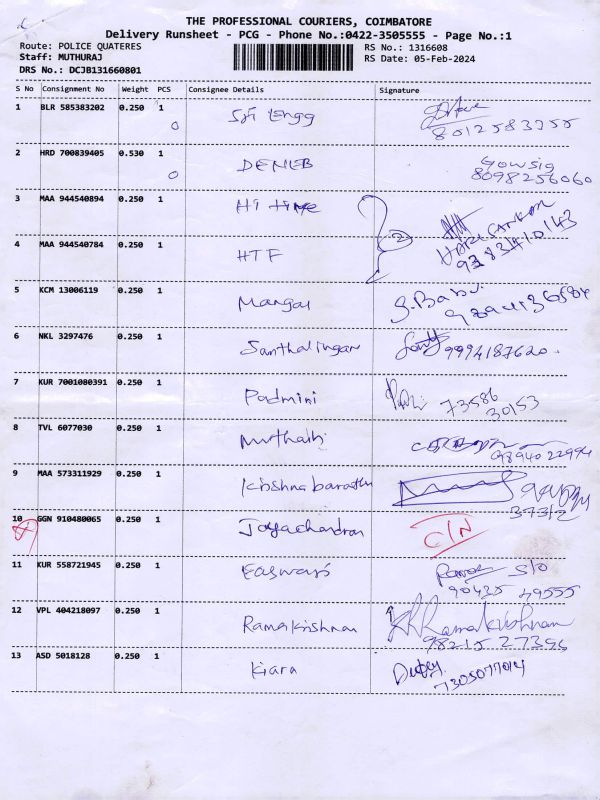 THE PROFESSIONAL COURIERS, COIMBATORE
Delivery Runsheet - PCG - Phone No.:0422-3505555 - Page No.:1
Route: POLICE QUATERES RS No.: 1316608
Staff: MUTHURAJ RS Date: 05-Feb-2024
DRS No.: DCJB131660801
S No Consignment No Weight PCS Consignee Details Signature
1 BLR 585383202 0.250 1 Sri Engg
0 8012583255
2 HRD 700839405 0.530 1 DENEB Gowsig
0 8098256060
3 MAA 944540894 0.250 1 Hi time
4 MAA 944540784 0.250 1 HTF 2 HARI SANKAR
5 KCM 13006119 0.250 1 Mangai S. Babu
6 NKL 3297476 0.250 1 Santhalingam 9994187620
7 KUR 7001080391 0.250 1 Padmini 73586
30153
8 TVL 6077030 0.250 1 Muthaih
9894022994
9 MAA 573311929 0.250 1 Krishna barathi
37312
10 GGN 910480065 0.250 1 Jayachandran C/N
11 KUR 558721945 0.250 1 Easwari S/O
90435 49555
12 VPL 404218097 0.250 1 Ramakrishnan Ramakrishnan
98215 27396
13 ASD 5018128 0.250 1 Kiara
7305077014